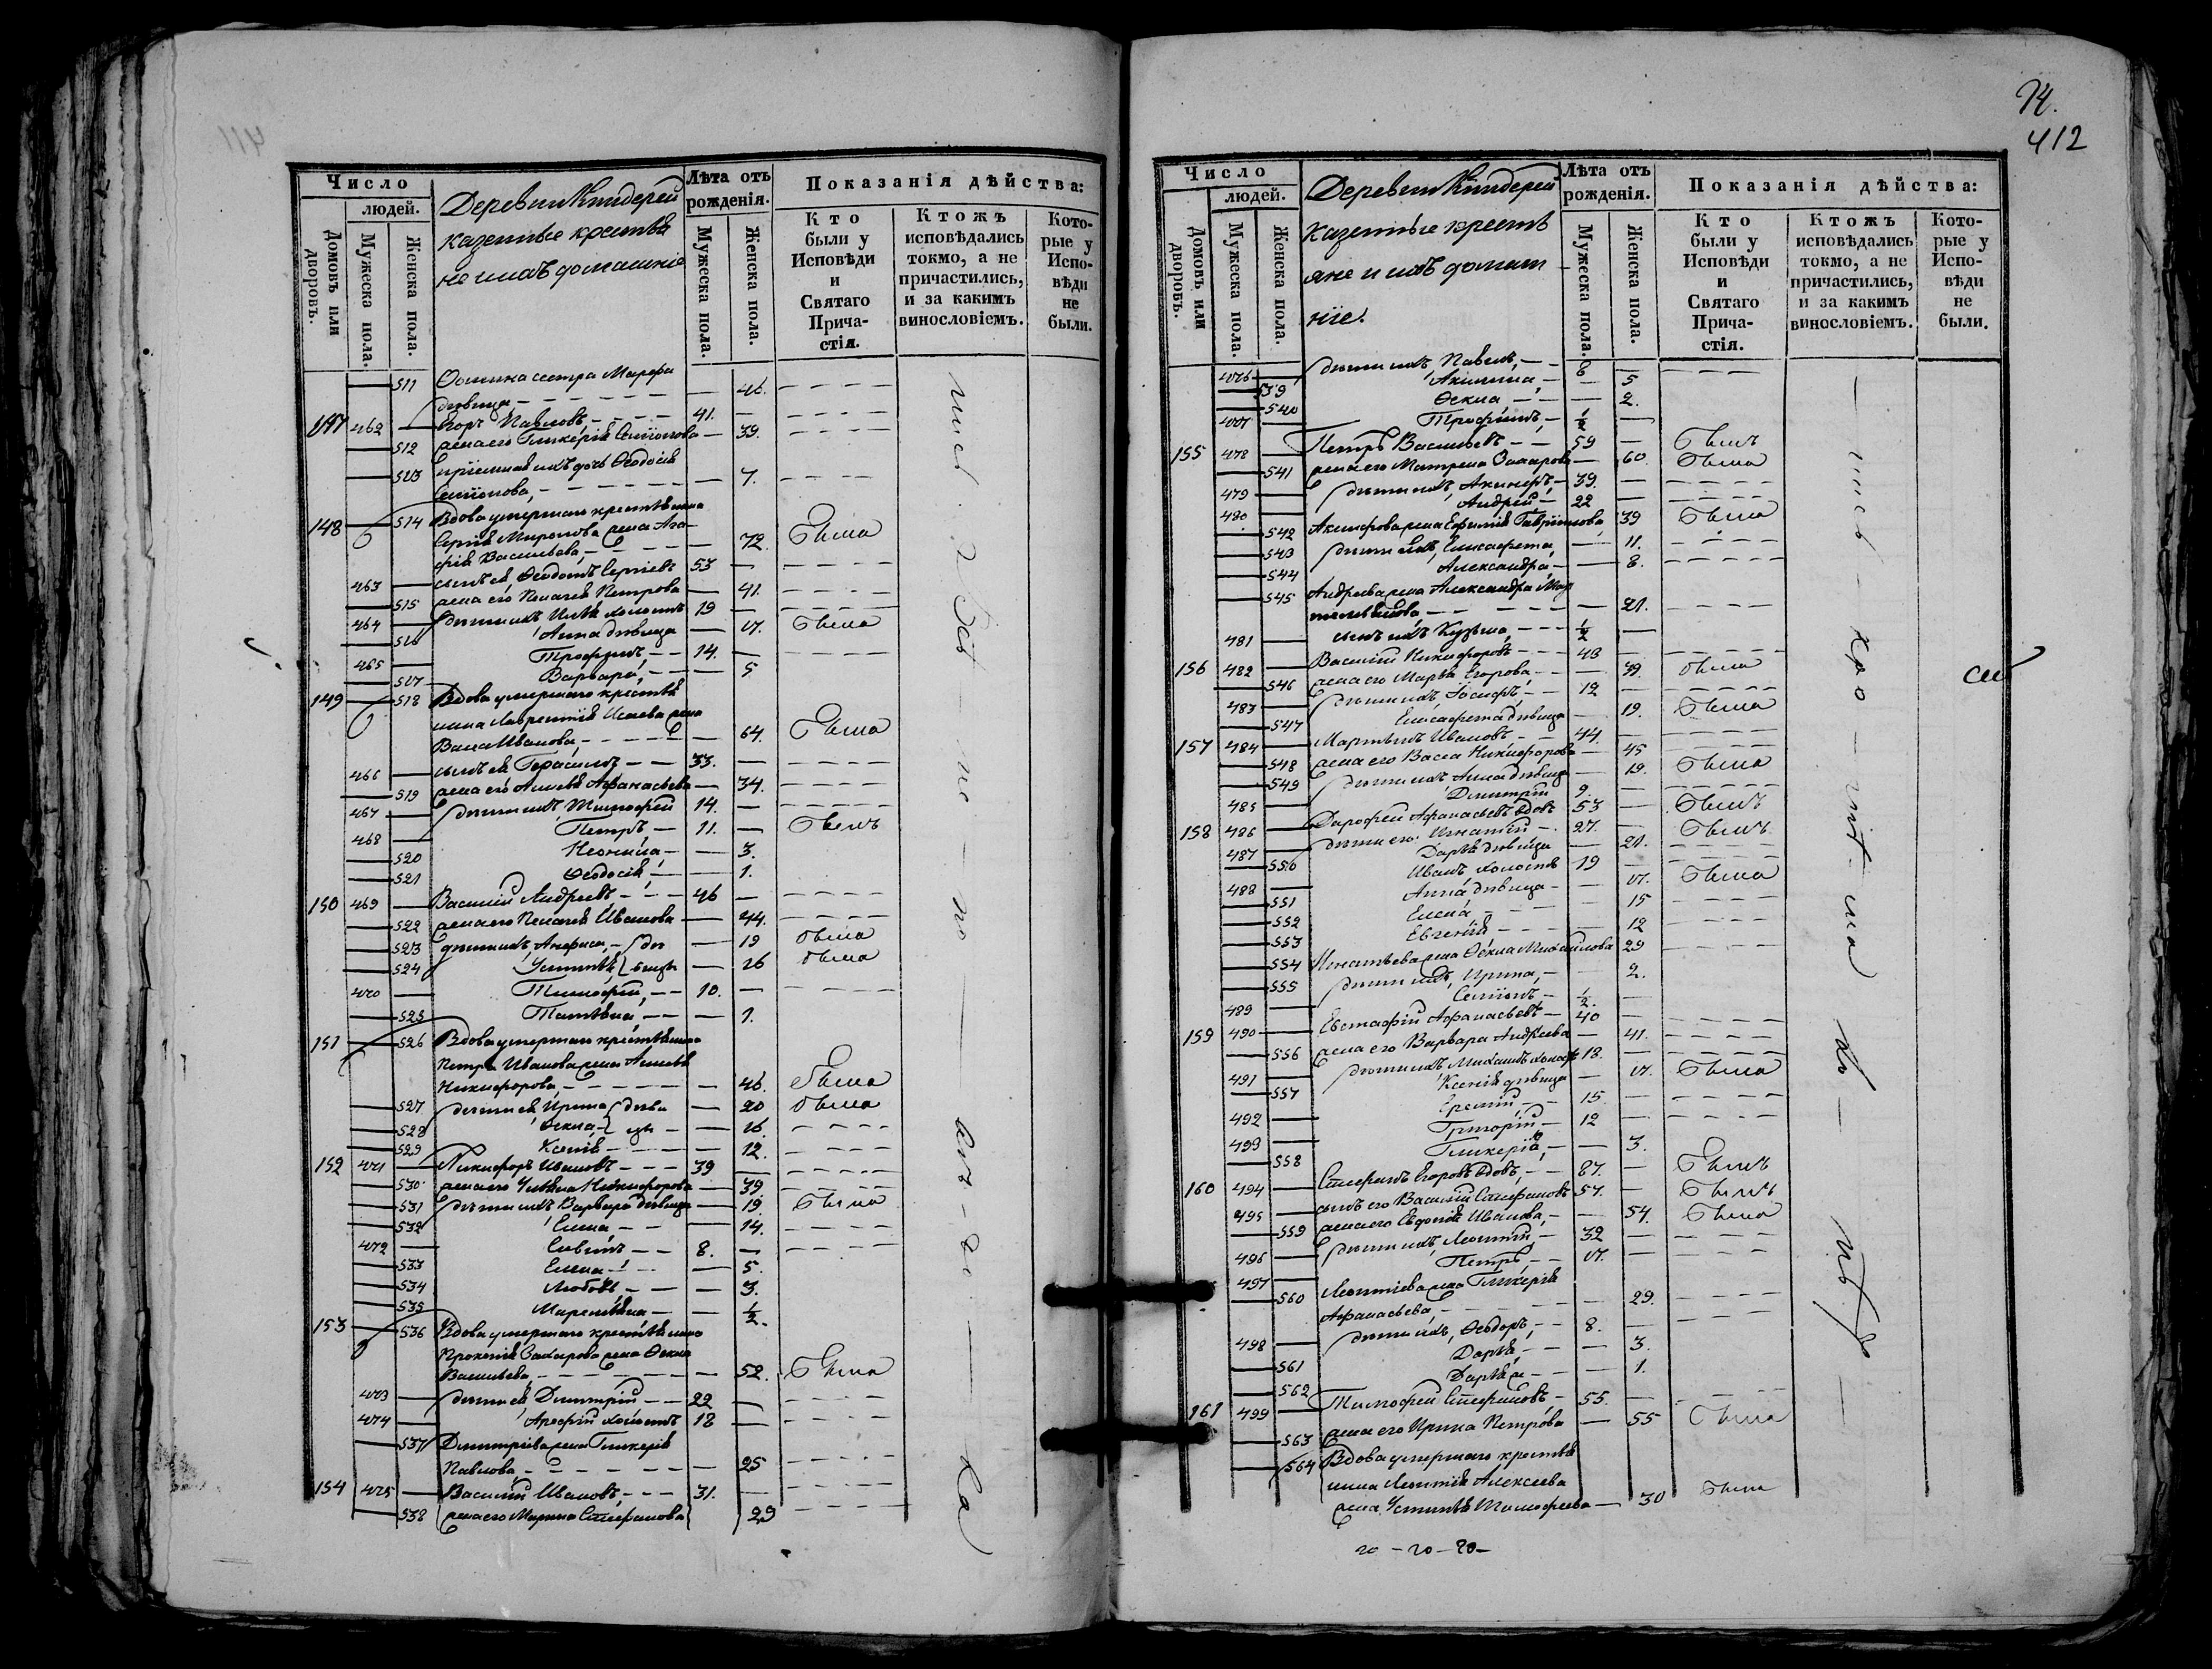 411
Число
людей.
Домовъ или дворовъ.
Мужеска пола.
Женска пола.
Деревни Киндерей
казенные крестья
не и ихъ домашніе
Лѣта отъ рожденія.
Мужеска пола.
Женска пола.
Показанія дѣйства:
Кто были у Исповѣди и Святаго Причастія.
Ктожъ исповѣдались токмо, а не причастились, и за какимъ винословіемъ.
Которые у Исповѣди не были.
511 сестра Марѳа
дѣвица 46.
147 462 Егоръ Павловъ 41.
512 жена его Гликерія Семіонова 39.
513 пріемная ихъ дочь Ѳеодосія
Семіонова, 7.
148 514 Вдова умершаго крестьянина
Сергія Миронова жена Ага-
фія Васильева 72. была
463 сынъ ея Ѳеодотъ Сергіевъ 53
515 жена его Пелагея Петрова 41.
464 дѣти ихъ Илья холостъ 19
516 Анна дѣвица 17. была
465 Трофимъ, 14.
517 Варвара, 5
149 518 Вдова умершаго крестья
нина Лаврентія Исаева жена
Васса Иванова 64. была
466 сынъ ея Герасимъ 33.
519 жена его Агафья Афанасьева 34.
467 дѣти ихъ, Тимофей 14.
468 Петръ 11. былъ
520 Неонила 3.
521 Ѳеодосія, 1.
150 469 Василій Андреевъ 46
522 жена его Пелагея Иванова 44.
523 дѣти ихъ, Анфиса, дѣ 19 была
524 Устинья вицы 16 была
470 Тимофей, 10.
525 Татьяна 1.
151 526 Вдова умершаго крестьянина
Петра Иванова жена
Никифорова, 46. была
527 дѣти ея Ирина дѣви 20 была
528 Ѳекла цы 16.
529 Ксенія 12.
152 471 Никифоръ Ивановъ 39
530 жена его Ульяна Никифорова 39
531 дѣти ихъ Варвара дѣвица 19. была
532 14.
472 8.
533 Елена 5.
534 Любовь 3.
535 ½.
153 536 Вдова умершаго крестьянина
Прокопія Захарова жена Ѳекла
Васильева, 52. была
473 дѣти ея, Димитрій 22
474 Арефій холостъ 18
537 Димитріева жена Гликерія
Павлова, 25
154 475 Василій Ивановъ, 31.
538 жена его Марина Стефанова 29
74.
412
Число
людей.
Домовъ или дворовъ.
Мужеска пола.
Женска пола.
Деревни Киндерей
казенные кресть
яне и ихъ домаш
ніе.
Лѣта отъ рожденія.
Мужеска пола.
Женска пола.
Показанія дѣйства:
Кто были у Исповѣди и Святаго Причастія.
Ктожъ исповѣдались токмо, а не причастились, и за какимъ винословіемъ.
Которые у Исповѣди не были.
476 дѣти ихъ Павелъ, 8
539 Акилина, 5
540 Ѳекла 2.
477 Трофимъ, ½
155 478 Петръ Васильевъ 59 былъ
541 жена его Матрена Захарова 60. была
479 дѣти ихъ, 39.
480 Андрей 22
542 жена Евфимія Гавріилова 39 была
543 дѣти ихъ, Елисавета, 11.
544 Александра, 8.
545 Андреева жена Александра
21.
481 сынъ ихъ Кузьма, ½
156 482 Василій Никифоровъ 43
546 жена его Марья Егорова 39. была
483 дѣти ихъ, Іосифъ, 12
547 Елисавета дѣвица 19. была
157 484 Мартынъ Ивановъ 44.
548 жена его Васса Никифорова 45
549 дѣти ихъ Анна дѣвица 19. была
485 Димитрій 9.
158 486 Дарофей Афанасьевъ вдовъ 53 былъ
487 дѣти его Игнатій 27. былъ
550 Дарья дѣвица 21.
488 Иванъ холостъ 19
551 Анна дѣвица 17. была
552 Елена 15
553 Евгенія 12
554 Игнатьева жена Ѳекла Михайлова 29
555 дѣти ихъ, Ирина, 2.
489 Семіонъ ½.
159 490 Евстафій Афанасьевъ 40
556 жена его Варвара Андреева 41.
491 дѣти ихъ Михаилъ холостъ 18.
557 Ксенія дѣвица 17. была
492 15.
493 Григорій 12
558 Гликерія, 3.
160 494 Стефанъ Егоровъ вдовъ, 87. былъ
495 сынъ его Василій Стефановъ 57. былъ
559 жена его Евдокія Иванова, 54. была
496 дѣти ихъ, Леонтій, 32
497 Петръ, 17.
560 Леонтіева жена Гликерія
Афанасьева 29.
498 дѣти ихъ, Ѳеодоръ, 8.
561 Дарья, 3.
562 Дарья 1.
161 499 Тимофей Стефановъ, 55.
563 жена его Ирина Петрова 55 была
564 Вдова умершаго крестья
нина Леонтія Алексеева
жена Устинья Тимофеева 30 была
20 – 20 – 20 –